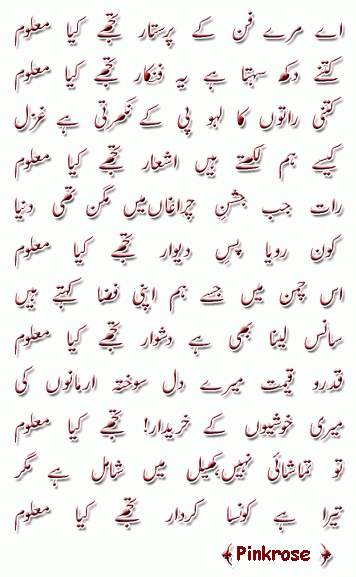 اے مرے فن کے پرستار تجھے کیا معلوم
کتنے دکھ سہتا ہے یہ فنکار تجھے کیا معلوم
کتنی راتوں کا لہو پی کے نکھرتی ہے غزل
کیسے ہم لکھتے ہیں اشعار تجھے کیا معلوم
رات جب جشنِ چراغاں میں مگن تھی دنیا
کون رویا پسِ دیوار تجھے کیا معلوم
اس چمن میں جسے ہم اپنی فضا کہتے ہیں
سانس لینا بھی ہے دشوار تجھے کیا معلوم
قدرو قیمت میرے دل سوختہ ارمانوں کی
میری خوشیوں کے خریدار! تجھے کیا معلوم
تو تماشائی نہیں، کھیل میں شامل ہے مگر
تیرا ہے کونسا کردار تجھے کیا معلوم
Pinkrose